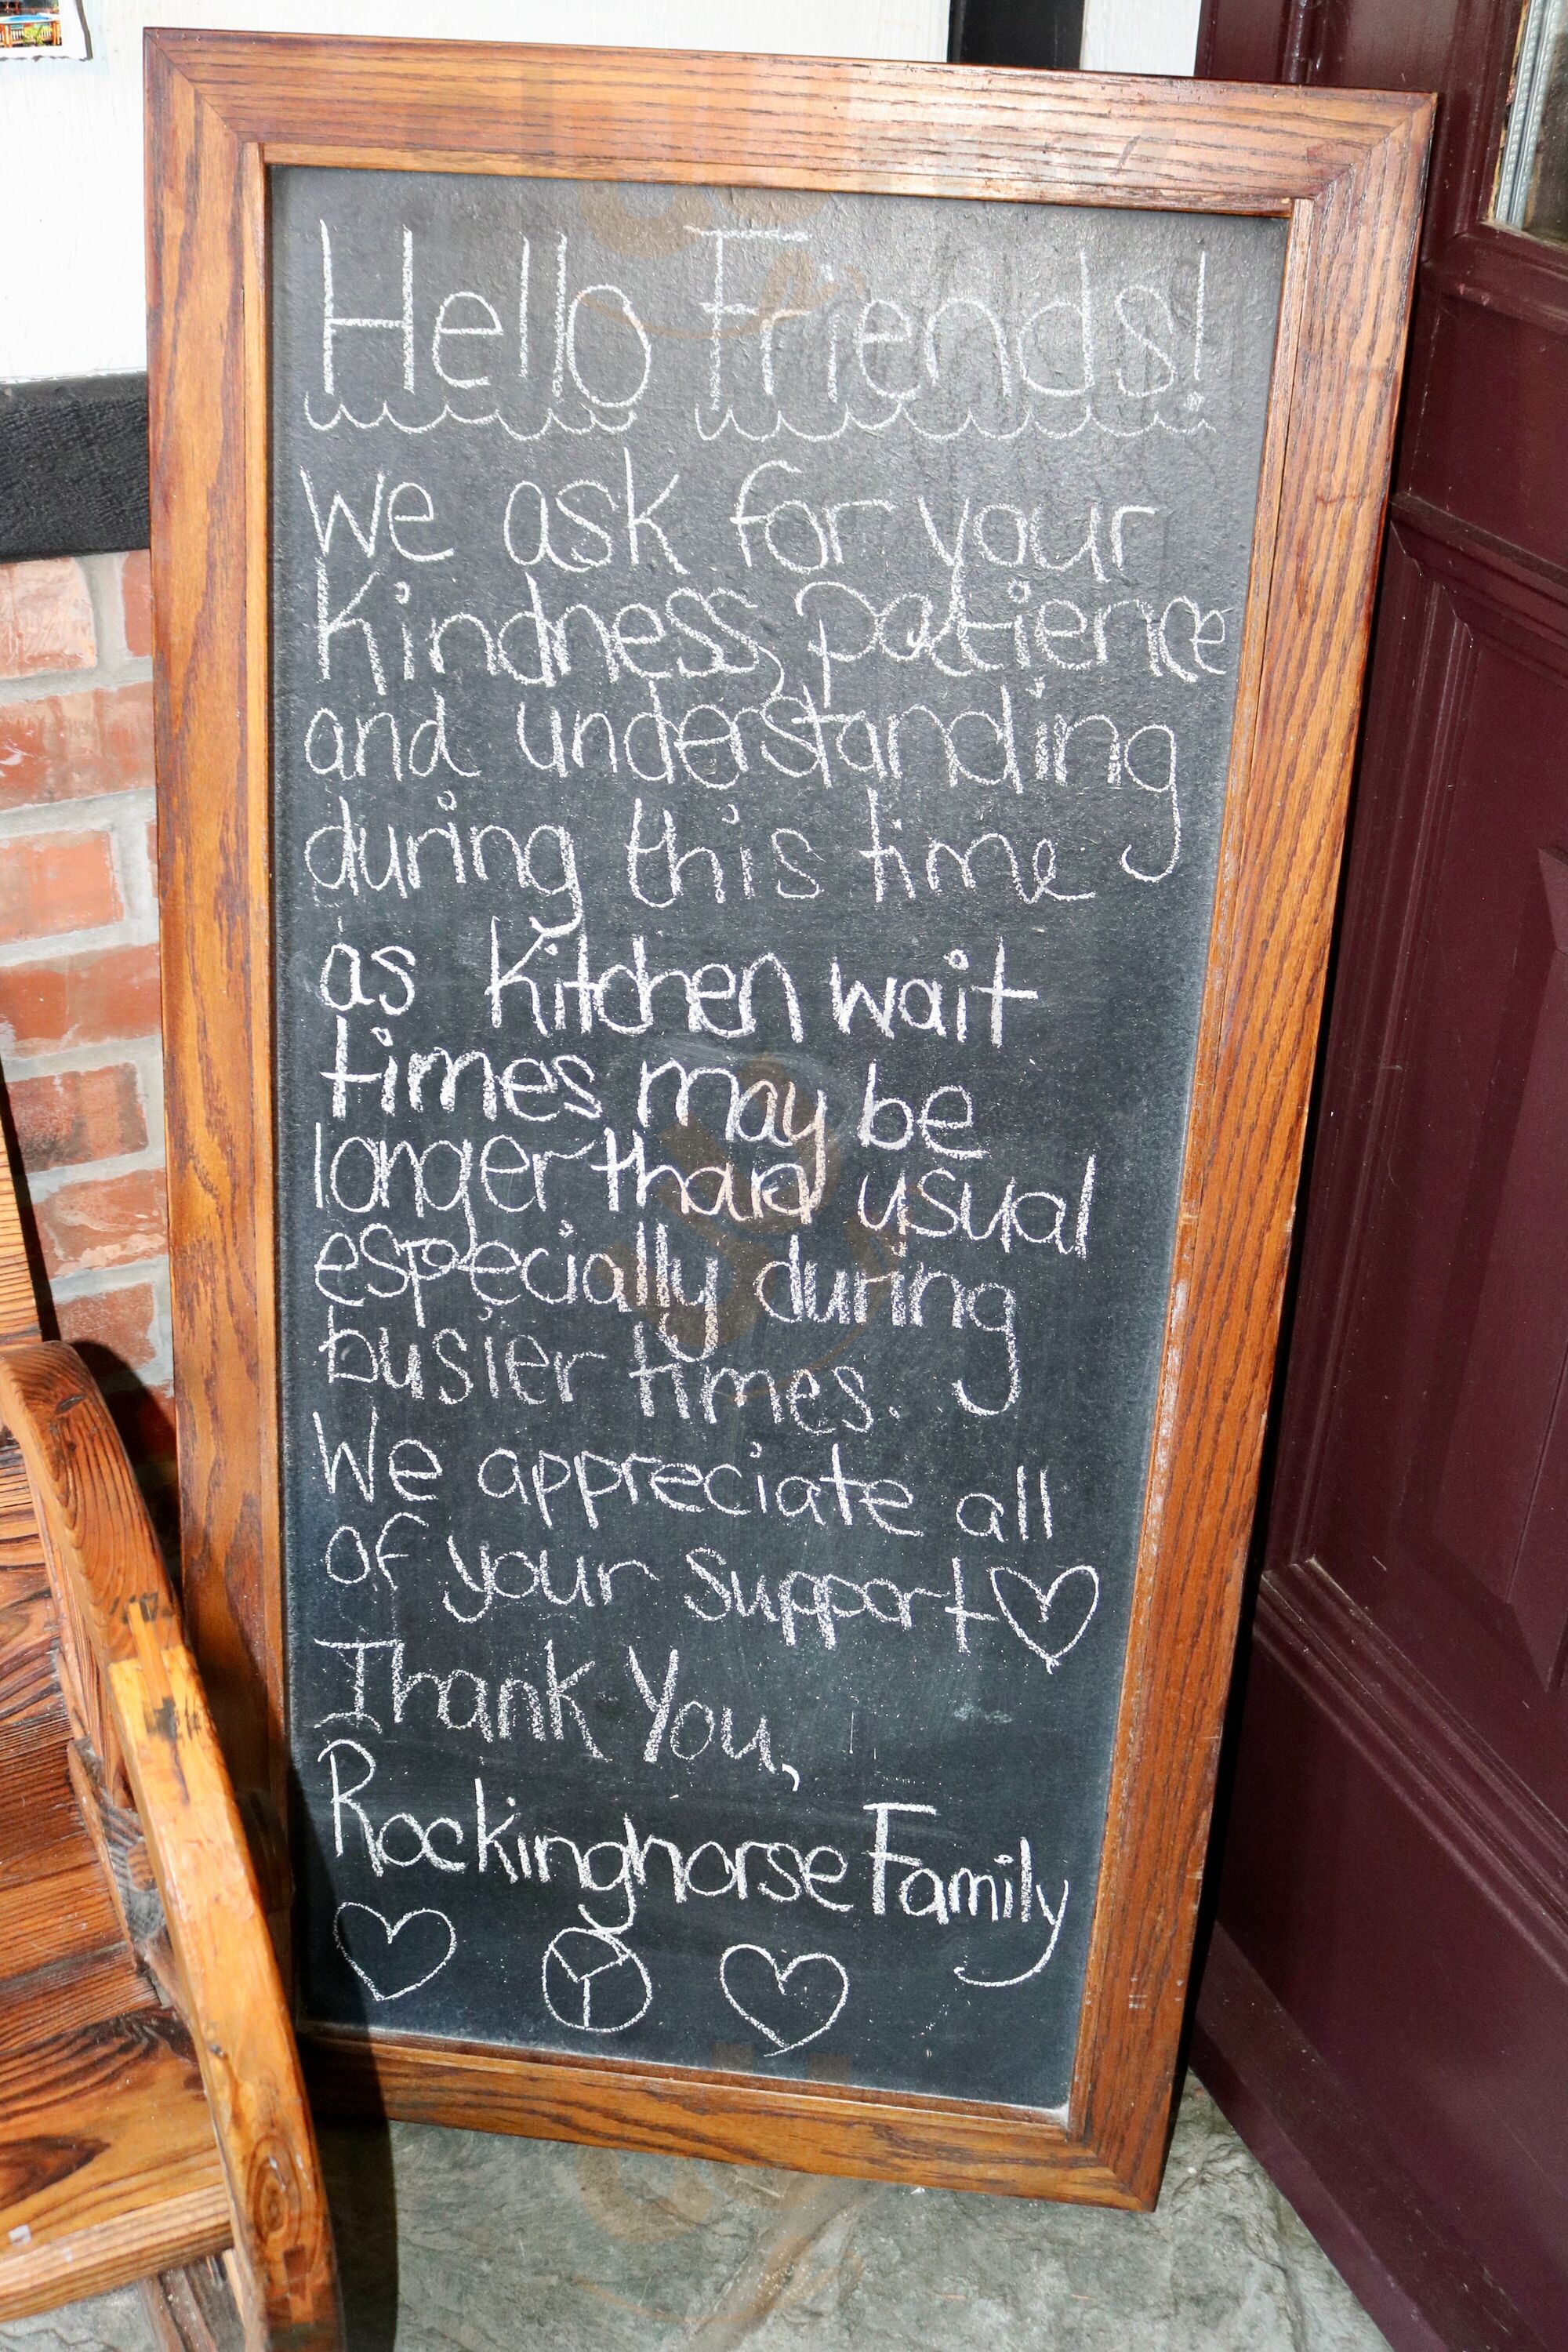 Hello Friends!
We ask for your
Kindness, patience
and understanding
during this time
as Kitchen wait
times may be
longer than usual
especially during
busier times.
We appreciate all
of your support
Thank You,
Rockinghorse Family